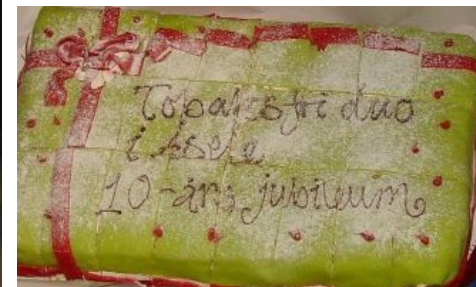 Tobaksfri duo
i Åsele
10-års jubileum